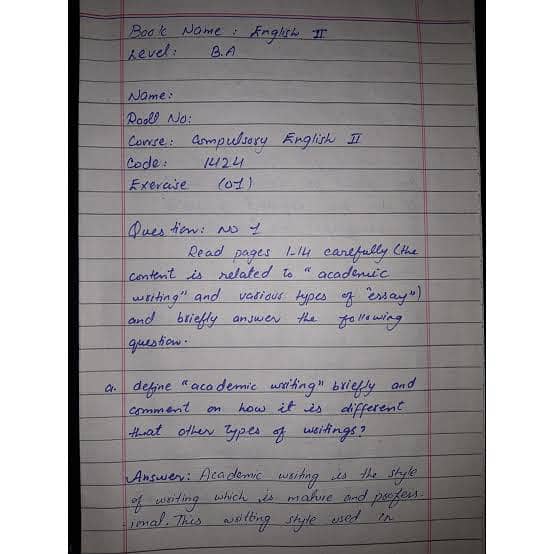 Book Name : English II
Level : B.A
Name:
Rooll No:
Course: Compulsory English II
Code : 1424
Exercise (01)
Question: No 1
Read pages 1-14 carefully (the
content is related to "academic
writing" and various types of "essay")
and briefly answer the following
question.
a. define "academic writing" briefly and
comment on how it is different
that other types of writings?
Answer: Academic writing is the style
of writing which is mature and profess-
ional. This writting style used in